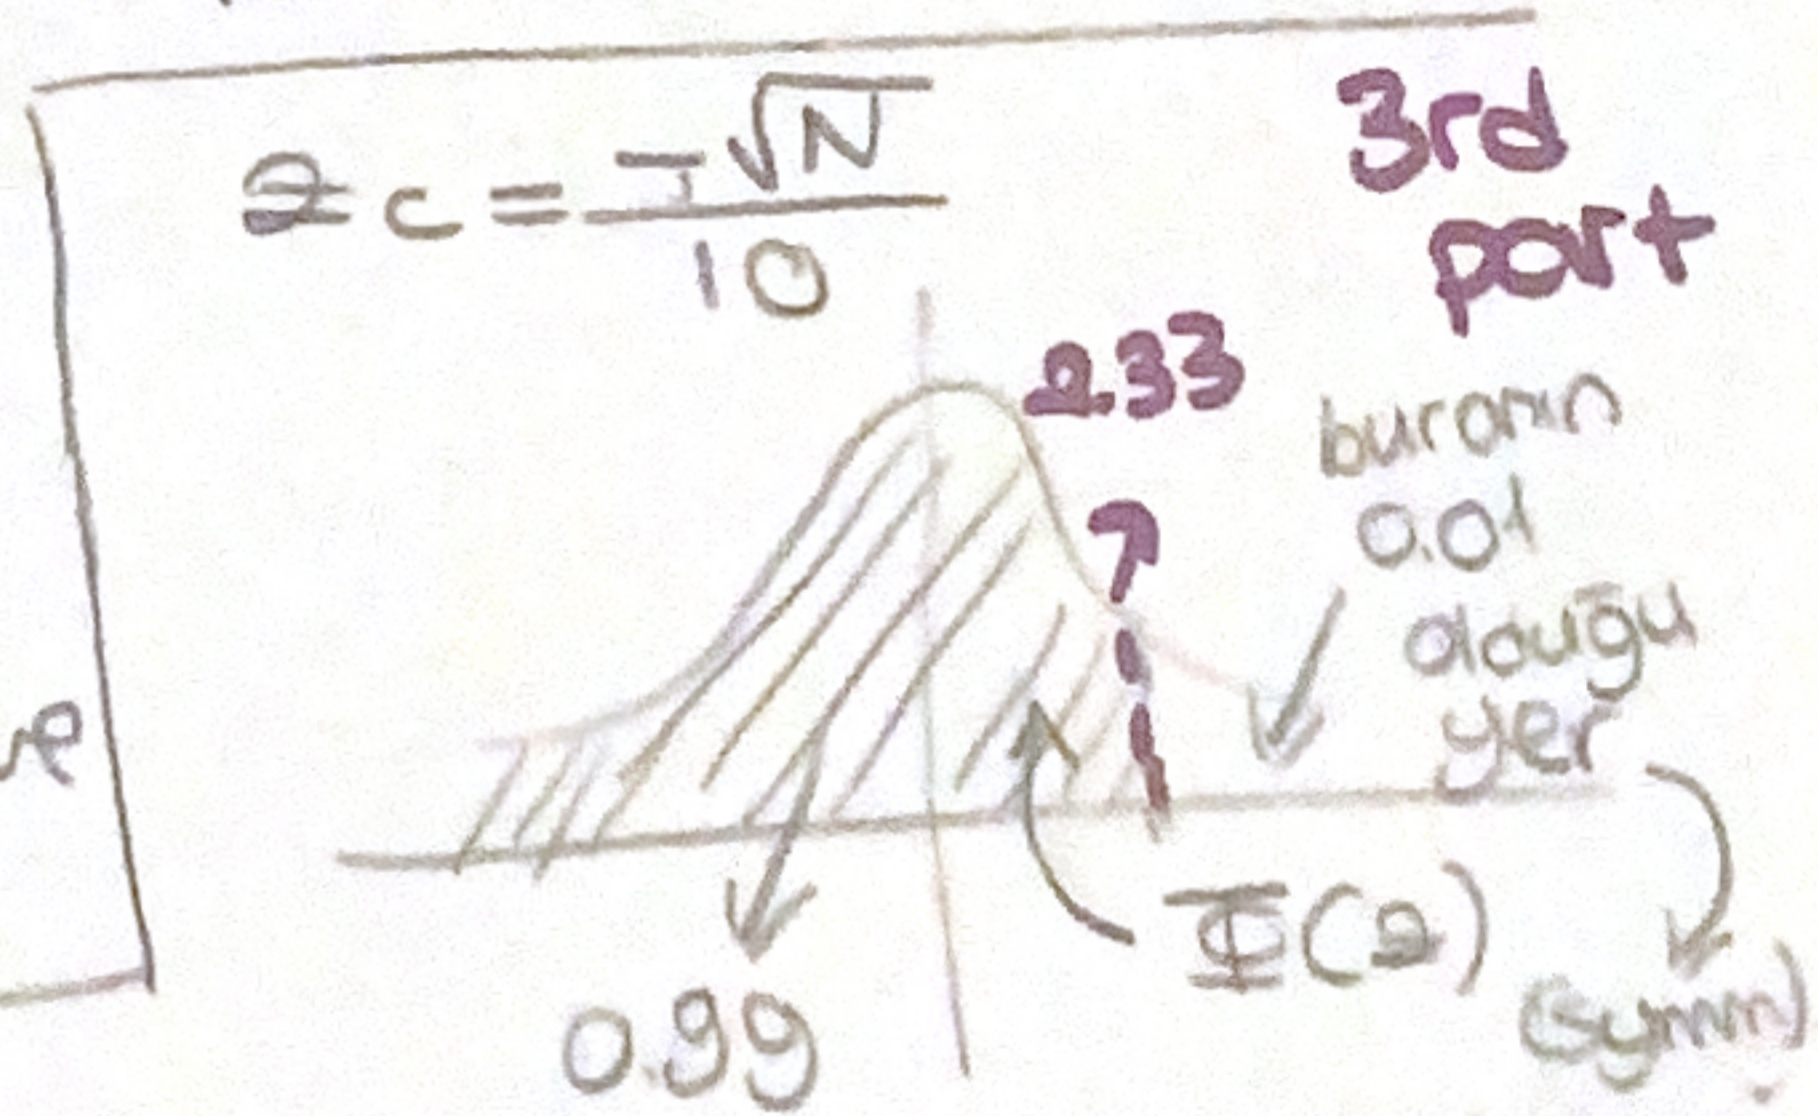 2c = -√N / 10
3rd
part
2.33
buranın
0.01
olduğu
yer
Φ(2)
(symm)
0.99
ve